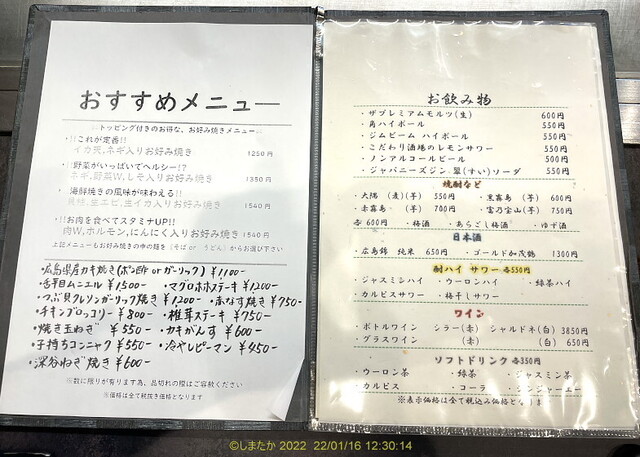 おすすめメニュー
トッピング付きのお得な、お好み焼きメニュー
・!!これが定番!!
イカ天、ネギ入りお好み焼き 1250円
・!!野菜がいっぱいでヘルシー!?
ネギ、野菜W、しそ入りお好み焼き 1350円
・海鮮焼きの風味が味わえる!!
生エビ、生イカ入りお好み焼き 1540円
・!!お肉を食べてスタミナUP!!
肉W、ホルモン、にんにく入りお好み焼き 1540円
上記メニューもお好み焼きの中の麺を(そば or うどん)からお選び下さい
・広島県産カキ焼き(ポン酢 or ガーリック) ¥1100-
・舌平目ムニエル ¥1500- ・マグロホホステーキ ¥1200-
・つぶ貝クレソンガーリック焼き ¥1200- ・赤なす焼き ¥750-
・チキンブロッコリー ¥800- ・椎茸ステーキ ¥750-
・焼き玉ねぎ ¥550- ・カキがんす ¥600-
・子持ちコンニャク ¥550- ・冷やしピーマン ¥450-
・深谷ねぎ焼き ¥600-
※数に限りが有ります為、品切れの際はご容赦ください
※価格は全て税抜き価格となります
お飲み物
・ザプレミアムモルツ(生) 600円
・角ハイボール 550円
・ジムビーム ハイボール 550円
・こだわり酒場のレモンサワー 550円
・ノンアルコールビール 500円
・ジャパニーズジン 翠(すい)ソーダ 550円
焼酎など
・大隅 (麦)(芋) 550円 ・黒霧島 (芋) 600円
・赤霧島 (芋) 700円 ・富乃宝山(芋) 750円
各600円 ・梅酒 ・あらごし梅酒 ・ゆず酒
日本酒
・広島錦 純米 650円 ・ゴールド加茂鶴 1300円
酎ハイ サワー 各550円
・ジャスミンハイ ・ウーロンハイ ・緑茶ハイ
・カルピスサワー ・梅干しサワー
ワイン
・ボトルワイン シラー(赤) シャルドネ(白) 3850円
・グラスワイン (赤) (白) 650円
ソフトドリンク 各350円
・ウーロン茶 ・緑茶 ・ジャスミン茶
・カルピス ・コーラ ・ジンジャーエー
※表示価格は全て税込み価格となります
©しまたか 2022 22/01/16 12:30:14